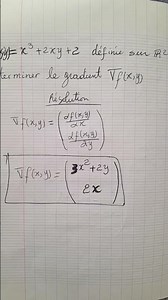 y)= x³ + 2xy + 2 définie sur ℝ²
terminer le gradient ∇f(x,y)
Résolution
∇f(x,y) = ( df(x,y)/dx
df(x,y)/dy )
∇f(x,y) = ( 3x² + 2y
2x )